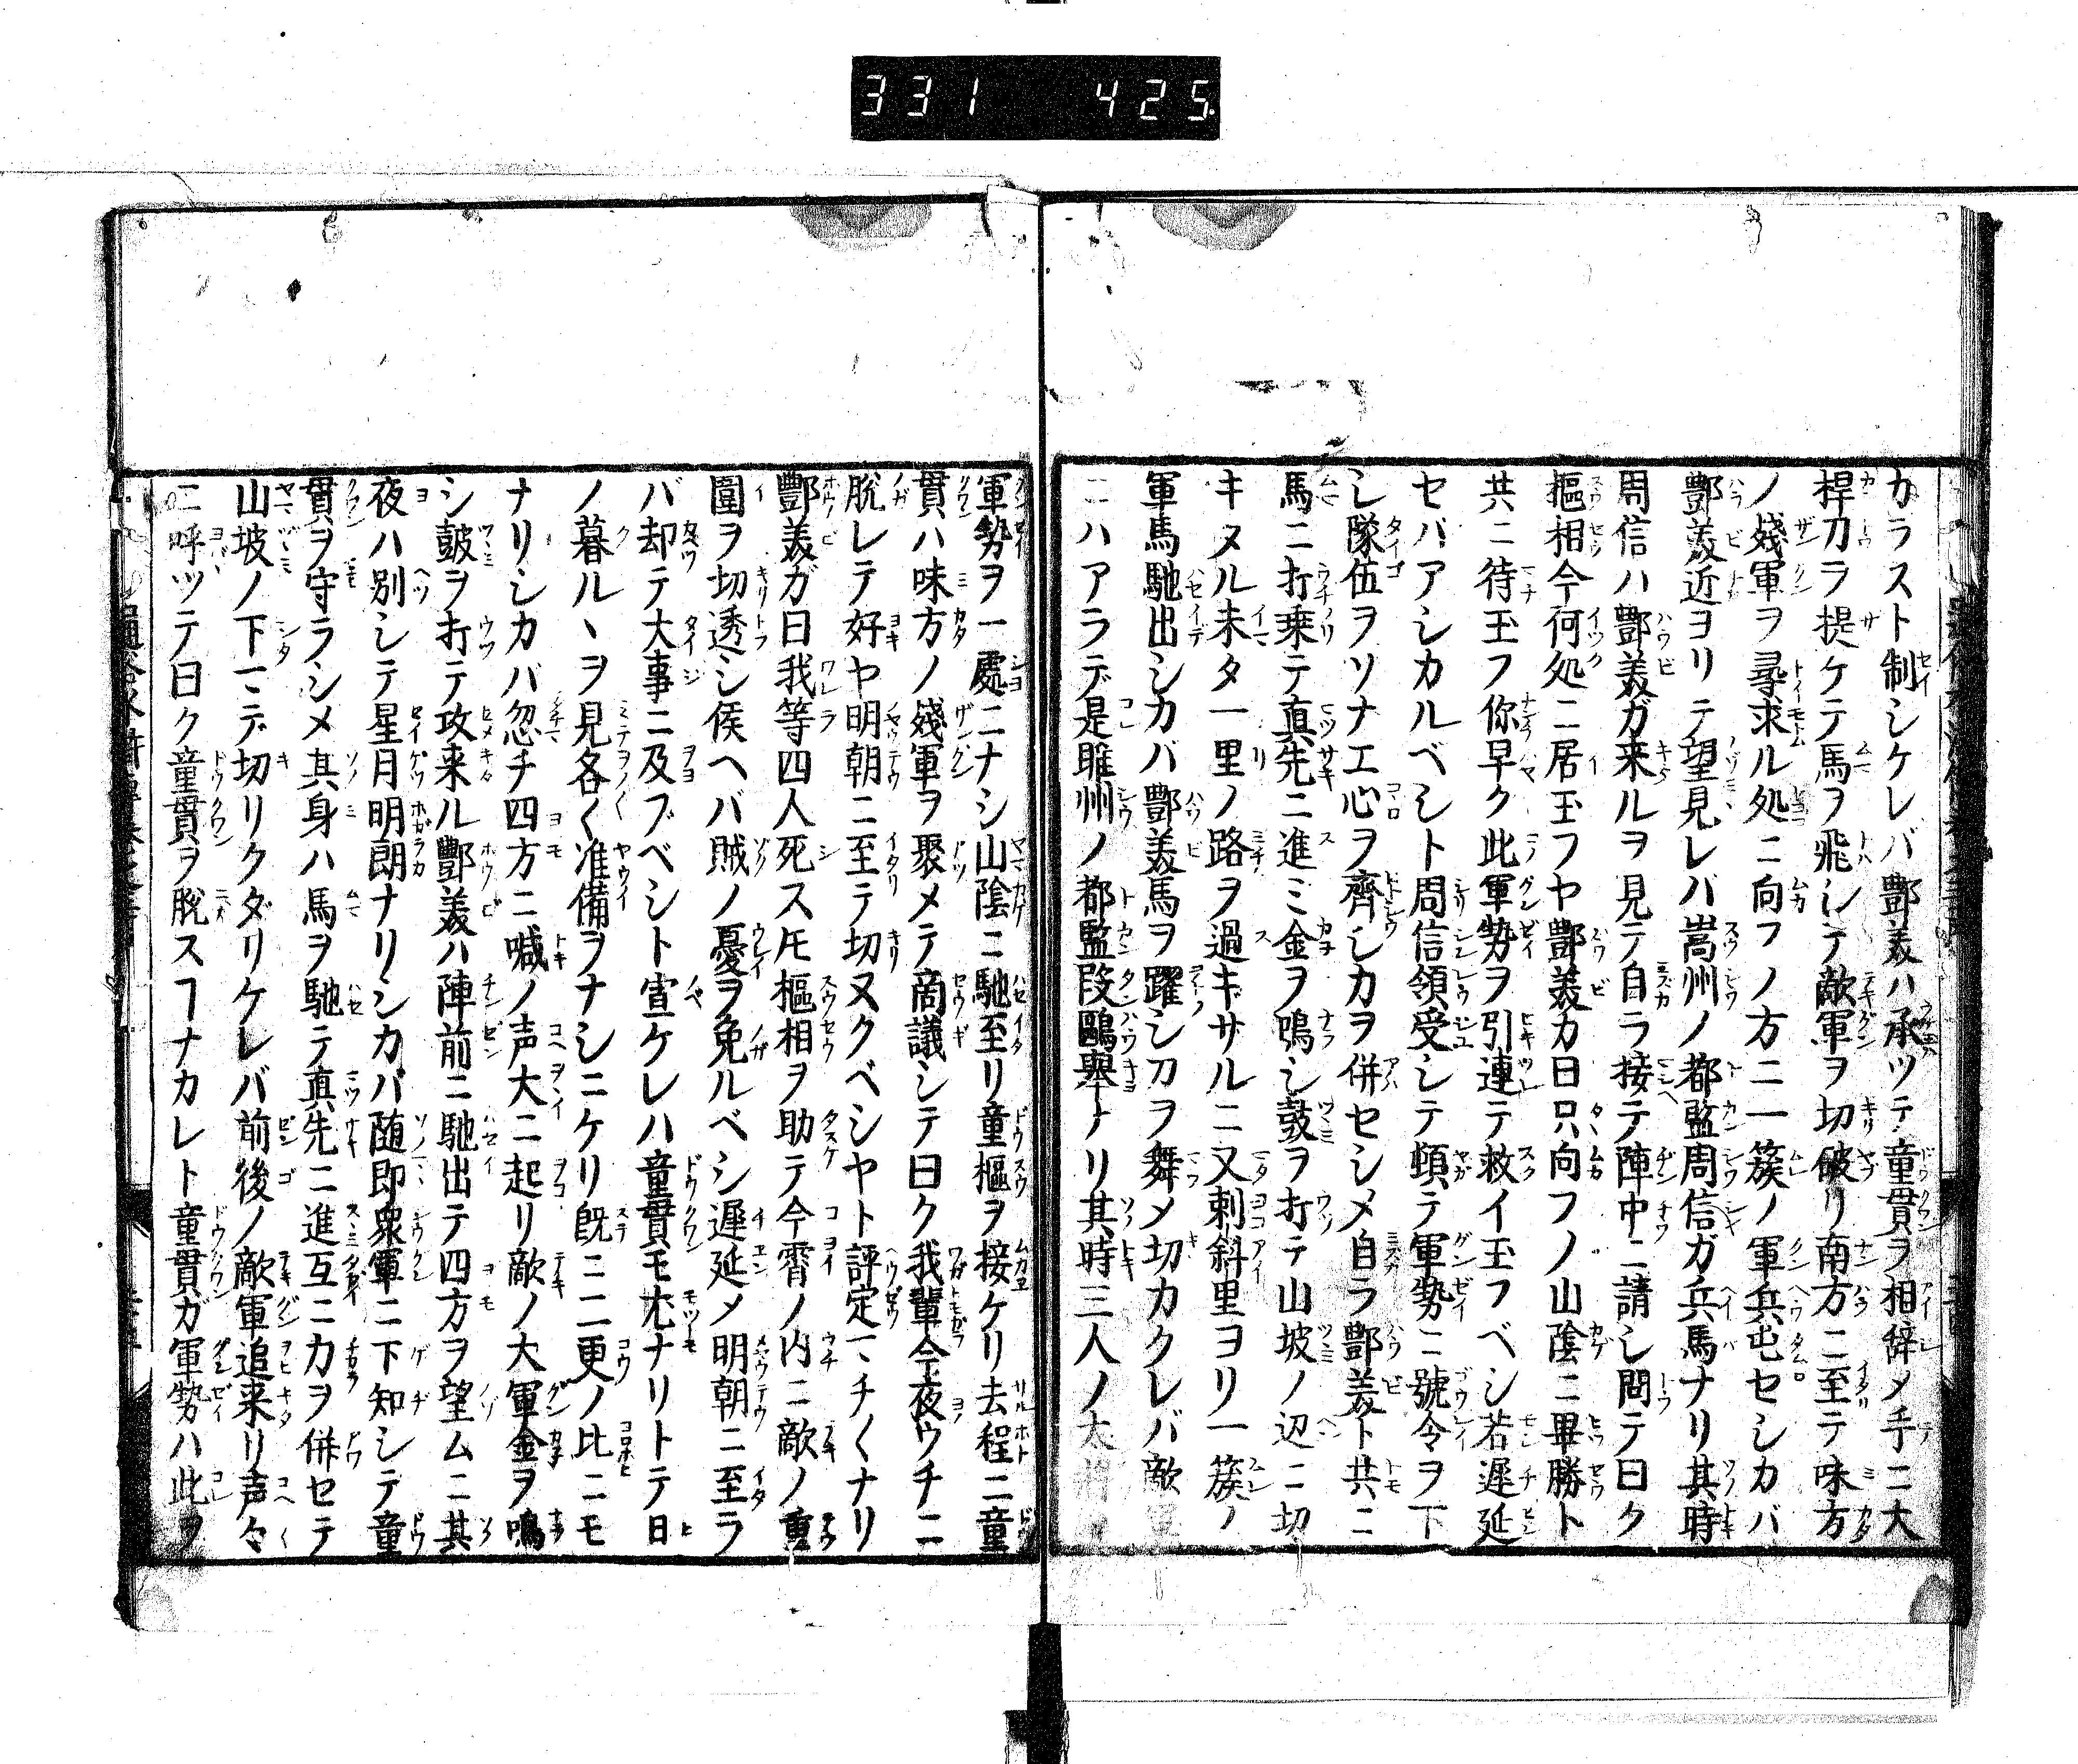 331 425
カラスト制シケレバ酆美ハ承ツテ童貫ヲ相辞メ手ニ大
桿刀ヲ提ケテ馬ヲ飛シテ敵軍ヲ切破リ南方ニ至テ味方
ノ殘軍ヲ尋求ル処ニ向フノ方ニ一簇ノ軍兵屯セシカバ
酆美近ヨリテ望見レバ嵩州ノ都監周信ガ兵馬ナリ其時
周信ハ酆美ガ来ルヲ見テ自ラ接テ陣中ニ請シ問テ曰ク
樞相今何処ニ居玉フヤ酆美カ曰只向フノ山陰ニ畢勝ト
共ニ待玉フ你早ク此軍勢ヲ引連テ救イ玉フベシ若遲延
セバアシカルベシト周信領受シテ頓テ軍勢ニ號令ヲ下
シ隊伍ヲソナエ心ヲ齊シカヲ併セシメ自ラ酆美ト共ニ
馬ニ打乗テ真先ニ進ミ金ヲ鳴シ鼓ヲ打テ山坡ノ辺ニ切
キヌル未タ一里ノ路ヲ過ギサルニ又刺斜里ヨリ一簇ノ
軍馬馳出シカバ酆美馬ヲ躍シ刀ヲ舞メ切カクレバ敵
ニハアラデ是睢州ノ都監段鵬舉ナリ其時三人ノ大
軍勢ヲ一處ニナシ山陰ニ馳至リ童樞ヲ接ケリ去程ニ童
貫ハ味方ノ殘軍ヲ聚メテ商議シテ曰ク我輩今夜ウチニ
脱レテ好ヤ明朝ニ至テ切ヌクベシヤト評定一チ〱ナリ
酆美ガ曰我等四人死ス𪜈樞相ヲ助テ今霄ノ内ニ敵ノ重
圍ヲ切透シ候ヘバ賊ノ憂ヲ免ルベシ遲延メ明朝ニ至ラ
バ却テ大事ニ及ブベシト宣ケレハ童貫モ尤ナリトテ日
ノ暮ルヽヲ見各〱准備ヲナシニケリ既ニ二更ノ比ニモ
ナリシカバ忽チ四方ニ喊ノ声大ニ起リ敵ノ大軍金ヲ鳴
シ鼓ヲ打テ攻来ル酆美ハ陣前ニ馳出テ四方ヲ望ムニ其
夜ハ別シテ星月明朗ナリシカバ随即衆軍ニ下知シテ童
貫ヲ守ラシメ其身ハ馬ヲ馳テ真先ニ進互ニカヲ併セテ
山坡ノ下一デ切リクダリケレバ前後ノ敵軍追来リ声々
ニ呼ツテ曰ク童貫ヲ脱スヿナカレト童貫ガ軍勢ハ此ヲ